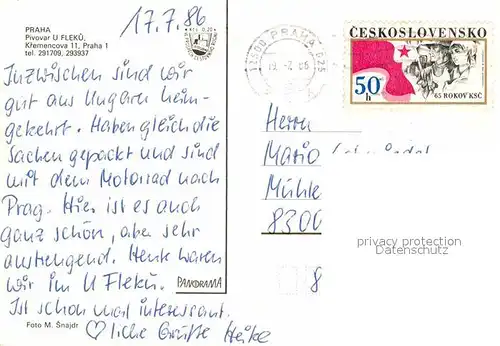 PRAHA
Pivovar U FLEKŮ,
Křemencova 11, Praha 1
tel. 291709, 293937
17.7.86
Kčs 0,20
Inzwischen sind wir
gut aus Ungarn heim-
gekehrt. Haben gleich die
Sachen gepackt und sind
mit dem Motorrad nach
Prag. Hier ist es auch
ganz schön, aber sehr
anstrengend. Heute waren
wir im U Fleků.
Ist schon mal interessant.
♡liche Grüße Heike
Foto M. Šnajdr
PANORAMA
PRAHA 025
ČESKOSLOVENSKO
50 h
65 ROKOV KSČ
Herrn
Mario
Mühle
8300
8
privacy protection
Datenschutz